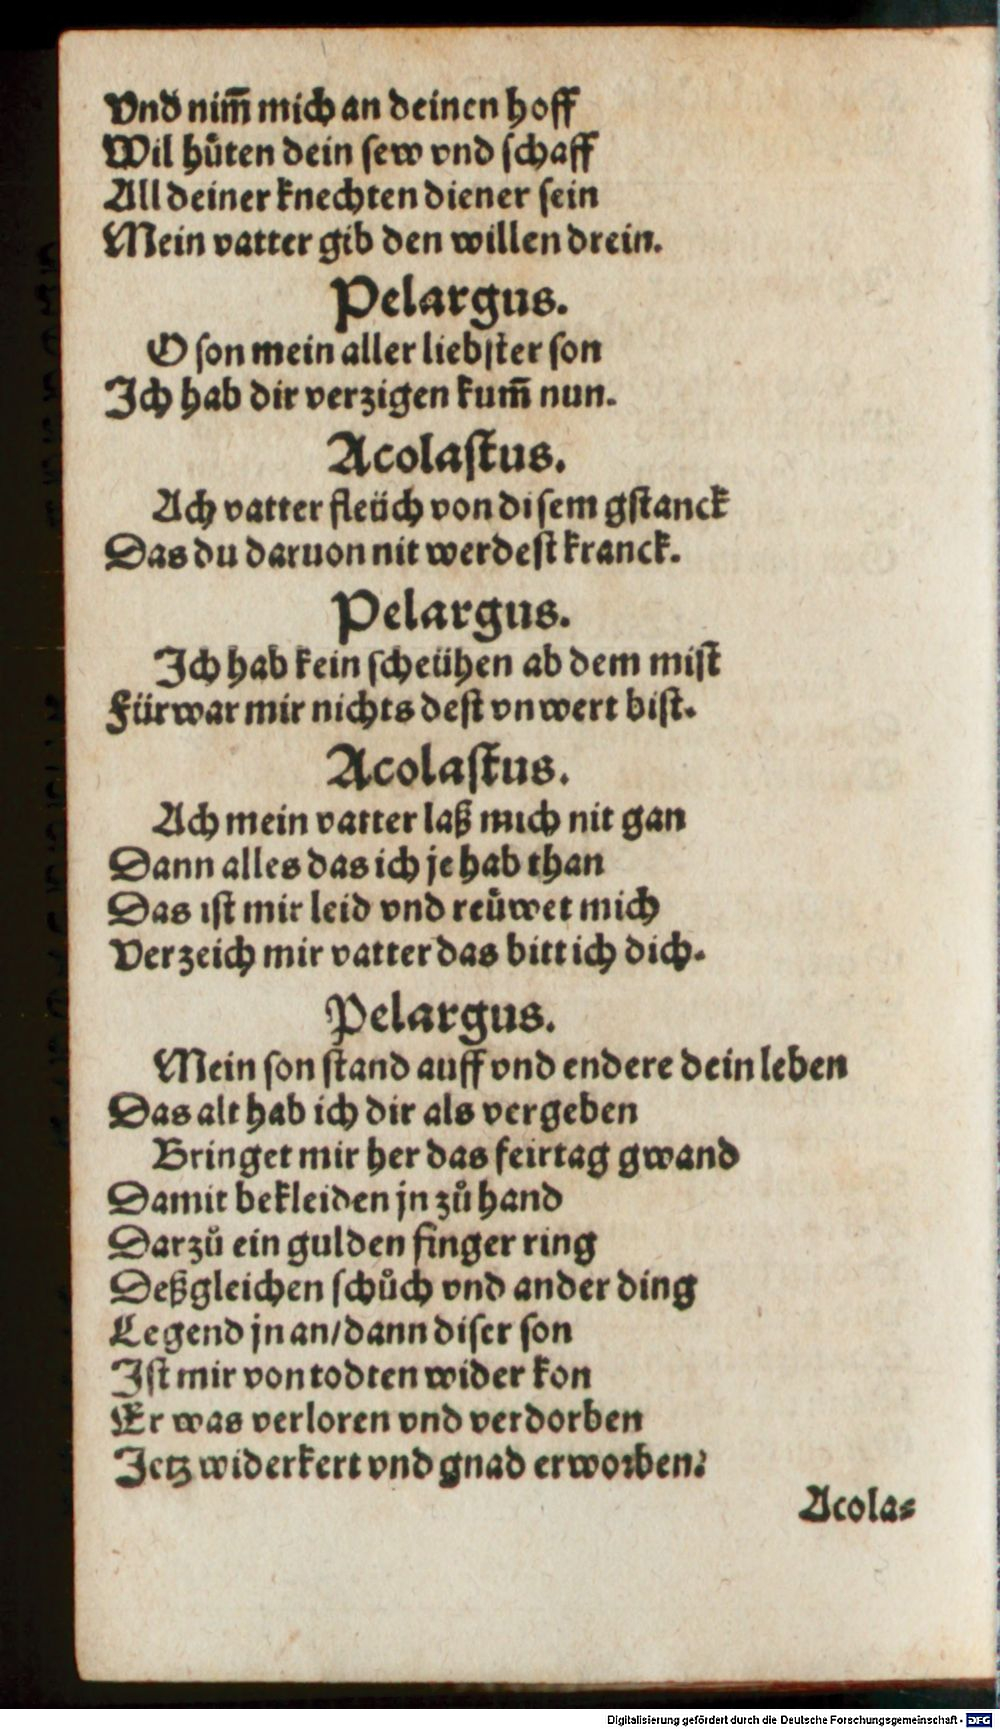 Vnd nim̃ mich an deinen hoff
Wil hüten dein sew vnd schaff
All deiner knechten diener sein
Mein vatter gib den willen drein.
Pelargus.
O son mein aller liebster son
Ich hab dir verzigen kum̃ nun.
Acolastus.
Ach vatter fleüch von disem gstanck
Das du daruon nit werdest kranck.
Pelargus.
Ich hab kein scheühen ab dem mist
Fürwar mir nichts dest vnwert bist.
Acolastus.
Ach mein vatter laß mich nit gan
Dann alles das ich je hab than
Das ist mir leid vnd reüwet mich
Verzeich mir vatter das bitt ich dich.
Pelargus.
Mein son stand auff vnd endere dein leben
Das alt hab ich dir als vergeben
Bringet mir her das feirtag gwand
Damit bekleiden jn zů hand
Darzů ein gulden finger ring
Deßgleichen schůch vnd ander ding
Legend jn an/dann diser son
Ist mir von todten wider kon
Er was verloren vnd verdorben
Jetz widerkert vnd gnad erworben.
Acola-
Digitalisierung gefördert durch die Deutsche Forschungsgemeinschaft - DFG